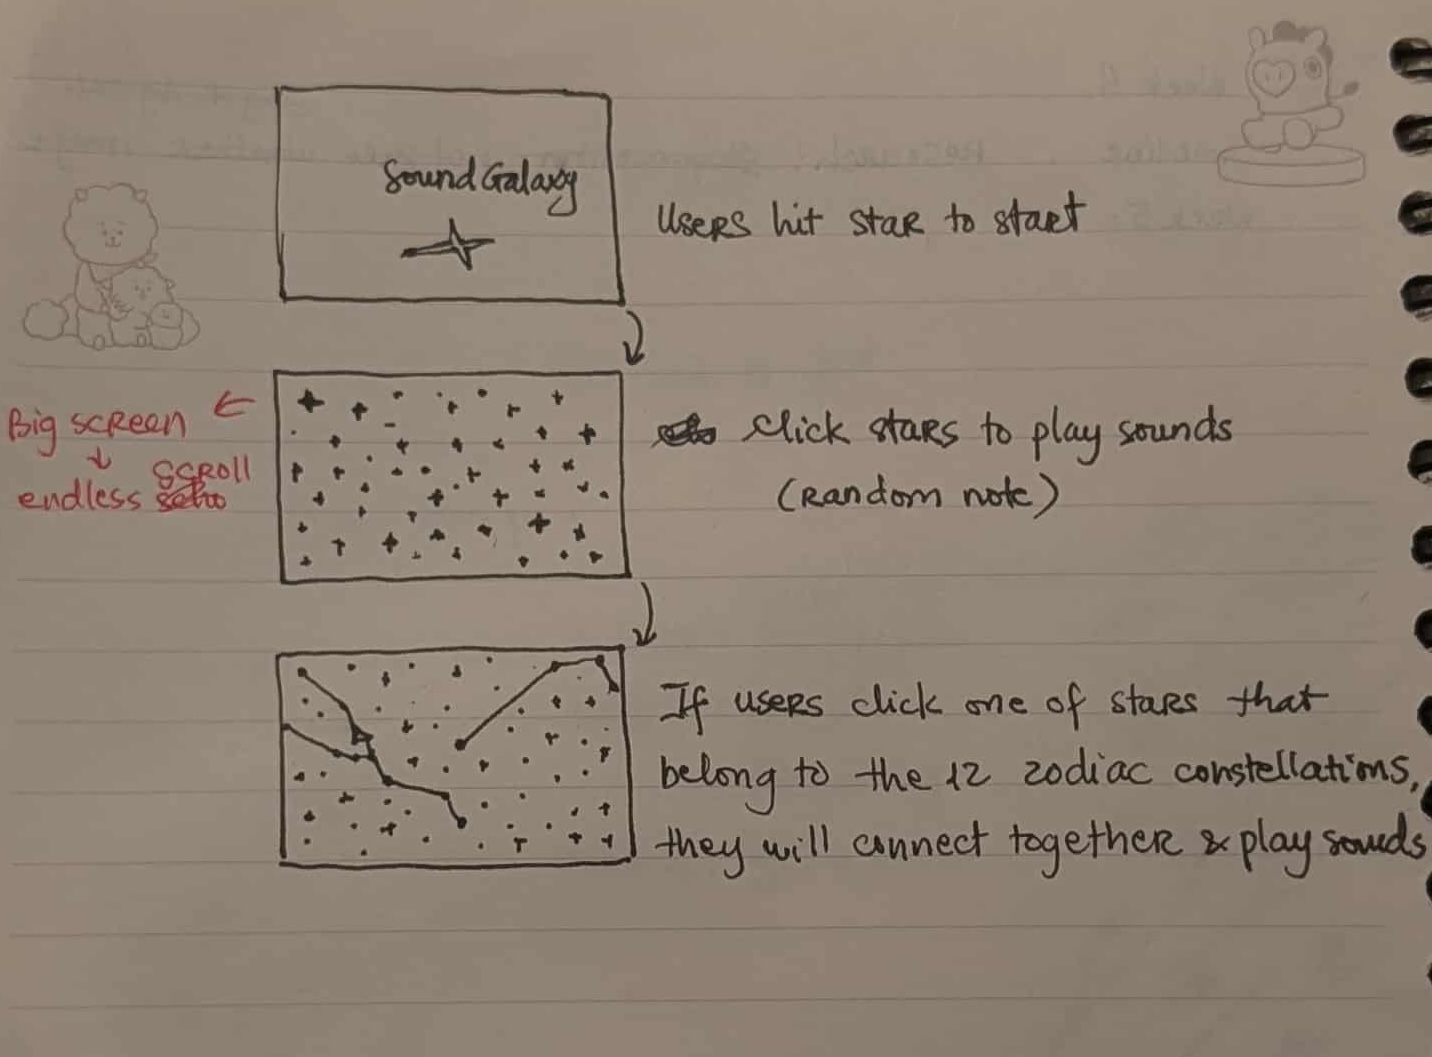 Sound Galaxy
Users hit star to start
Big screen
endless scroll
Click stars to play sounds
(Random note)
If users click one of stars that
belong to the 12 zodiac constellations,
they will connect together & play sounds